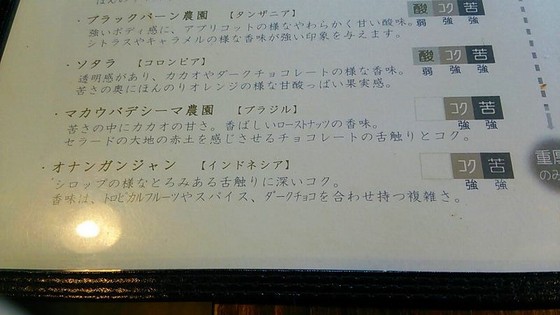 ・ブラックバーン農園 【タンザニア】 酸 コク 苦
弱 強 強
強いボディ感に、アプリコットの様なやわらかく甘い酸味。
シトラスやキャラメルの様な香味が強い印象を与えます。
・ソタラ 【コロンビア】 酸 コク 苦
弱 強 強
透明感があり、カカオやダークチョコレートの様な香味。
苦さの奥にほんのりオレンジの様な甘酸っぱい果実感。
・マカウバデシーマ農園 【ブラジル】 コク 苦
強 強
苦さの中にカカオの甘さ。香ばしいローストナッツの香味。
セラードの大地の赤土を感じさせるチョコレートの舌触りとコク。
・オナンガンジャン 【インドネシア】 コク 苦
強 強
シロップの様なとろみある舌触りに深いコク。
香味は、トロピカルフルーツやスパイス、ダークチョコを合わせ持つ複雑さ。
重厚
のみ